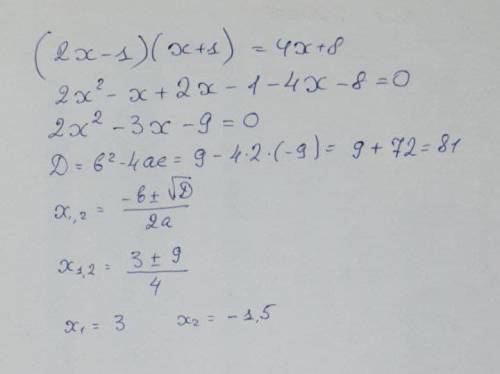 (2x-1)(x+1) = 4x+8
2x² - x + 2x - 1 - 4x - 8 = 0
2x² - 3x - 9 = 0
D = b² - 4ac = 9 - 4·2·(-9) = 9 + 72 = 81
x₁,₂ = (-b ± √D)/2a
x₁,₂ = (3 ± 9)/4
x₁ = 3 x₂ = -1,5